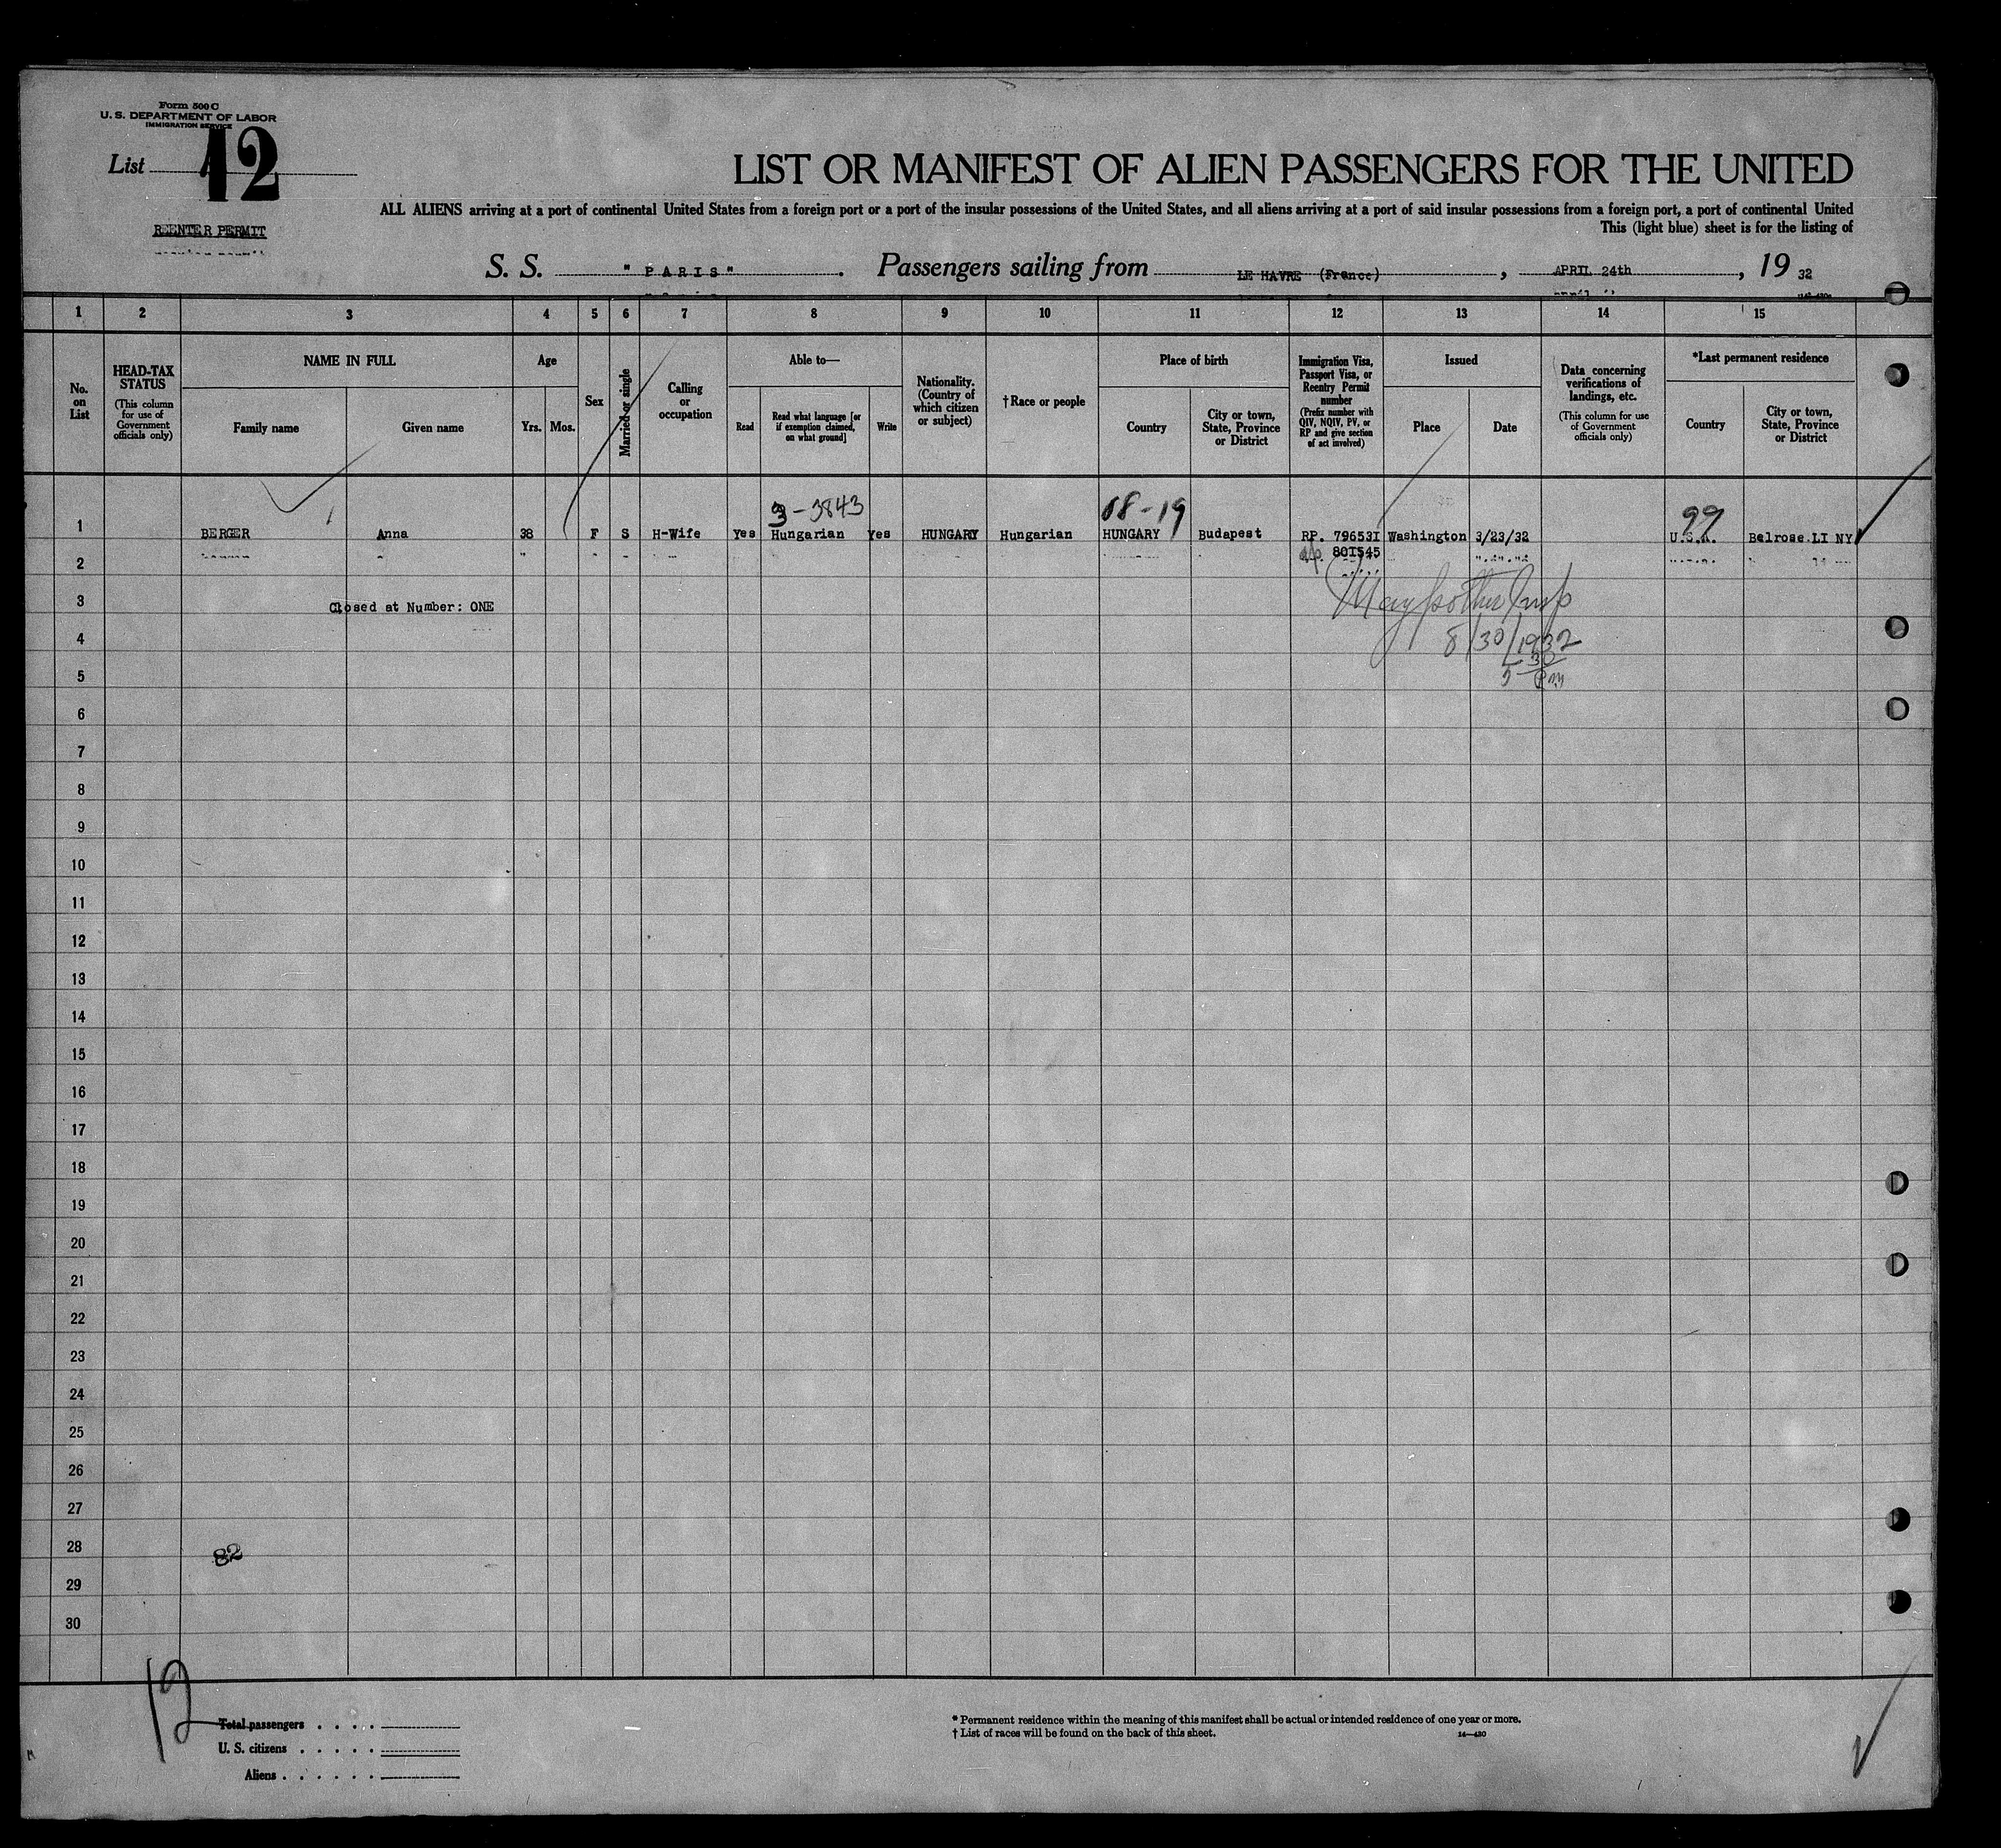 Form 500 C
U. S. DEPARTMENT OF LABOR
IMMIGRATION SERVICE
List 12
LIST OR MANIFEST OF ALIEN PASSENGERS FOR THE UNITED
ALL ALIENS arriving at a port of continental United States from a foreign port or a port of the insular possessions of the United States, and all aliens arriving at a port of said insular possessions from a foreign port, a port of continental United
This (light blue) sheet is for the listing of
REENTER PERMIT
S. S. "PARIS". Passengers sailing from LE HAVRE (France), APRIL 24th, 19 32
1 2 3 4 5 6 7 8 9 10 11 12 13 14 15
No. on List
HEAD-TAX STATUS (This column for use of Government officials only)
NAME IN FULL
Family name
Given name
Age
Yrs. Mos.
Sex
Married or single
Calling or occupation
Able to—
Read
Read what language [or if exemption claimed, on what ground]
Write
Nationality. (Country of which citizen or subject)
†Race or people
Place of birth
Country
City or town, State, Province or District
Immigration Visa, Passport Visa, or Reentry Permit number (Prefix number with QIV, NQIV, PV, or RP and give section of act involved)
Issued
Place
Date
Data concerning verifications of landings, etc. (This column for use of Government officials only)
*Last permanent residence
Country
City or town, State, Province or District
3-3843 18-19 99
1 BERGER Anna 38 F S H-Wife Yes Hungarian Yes HUNGARY Hungarian HUNGARY Budapest RP. 79653I Washington 3/23/32 U.S.A. Belrose.LI NY
80I545
2
3 Closed at Number: ONE
8/30/1932
4
5 30 Pm
5
6
7
8
9
10
11
12
13
14
15
16
17
18
19
20
21
22
23
24
25
26
27
28
82
29
30
12
Total passengers
U. S. citizens
Aliens
* Permanent residence within the meaning of this manifest shall be actual or intended residence of one year or more.
† List of races will be found on the back of this sheet.
14—430